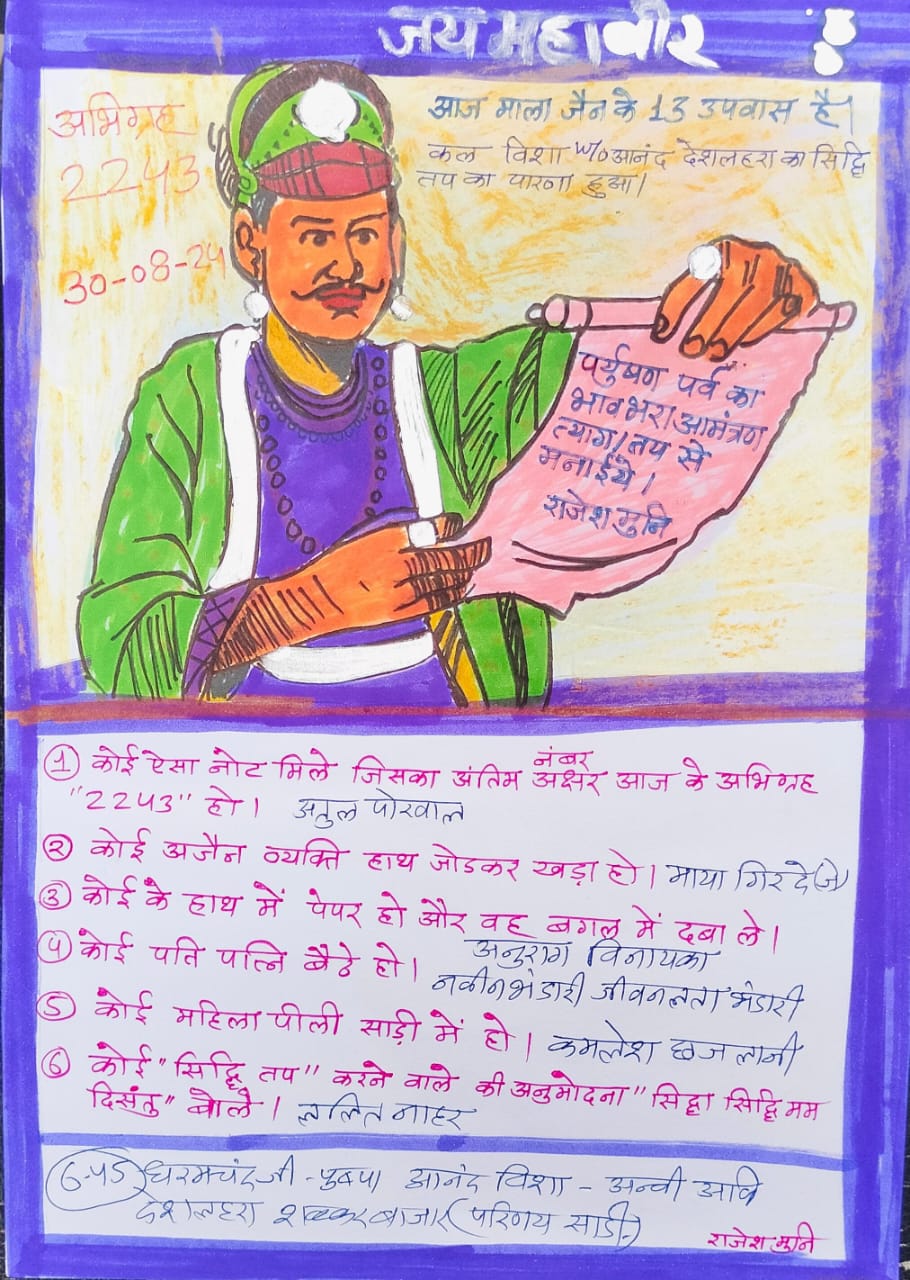 जय महावीर
अभिग्रह
2243
30-08-24
आज माला जैन के 13 उपवास है।
कल विशा w/o आनंद देशलहरा का सिद्धि
तप का पारणा हुआ।
पर्युषण पर्व का
भावभरा आमंत्रण
त्याग/तप से
मनाईये।
राजेश मुनि
① कोई ऐसा नोट मिले जिसका अंतिम नंबर अक्षर आज के अभिग्रह
"2243" हो। अतुल पोरवाल
② कोई अजैन व्यक्ति हाथ जोडकर खड़ा हो। माया गिरदे (जे)
③ कोई के हाथ में पेपर हो और वह बगल में दबा ले।
अनुराग विनायका
④ कोई पति पत्नि बैठे हो। नवीन भंडारी जीवनलता भंडारी
⑤ कोई महिला पीली साड़ी में हो। कमलेश छजलानी
⑥ कोई "सिद्धि तप" करने वाले की अनुमोदना "सिद्धा सिद्धि मम
दिसंतु" बोले। ललित नाहर
6-45 धरमचंदजी - पुष्पा आनंद विशा - अन्वी आवि
देशलहरा शक्कर बाजार (परिणय साडी)
राजेश मुनि